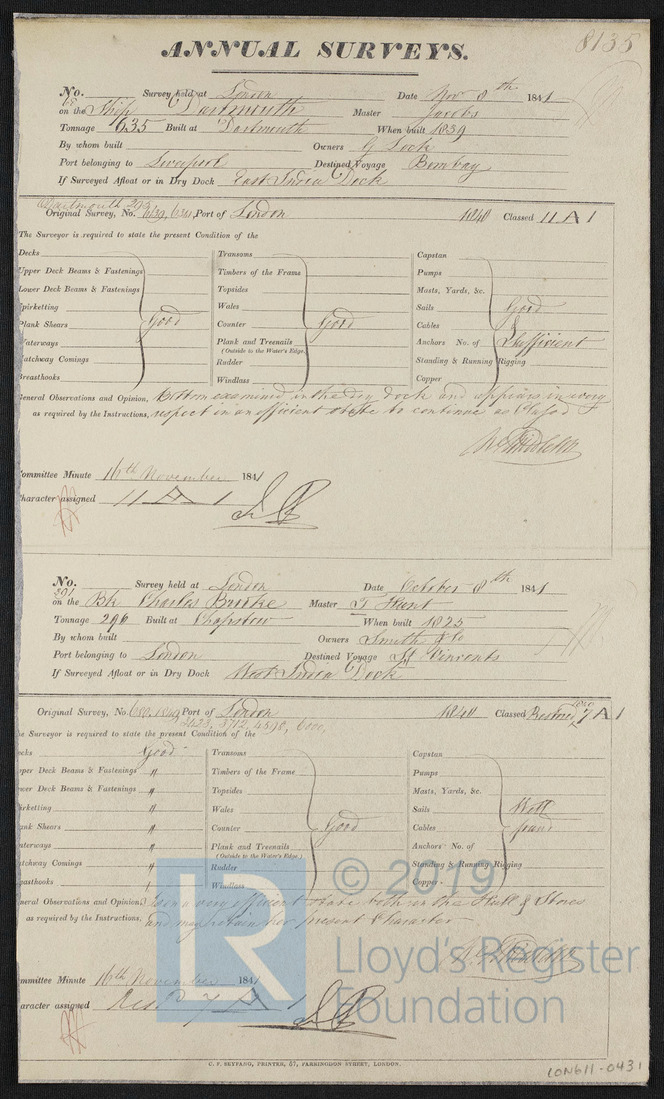 8135
ANNUAL SURVEYS.
No. 69 Survey held at London Date Nov 8th 1841
on the Ship Dartmouth Master Jacobs
Tonnage 635 Built at Dartmouth When built 1839
By whom built Owners G Lock
Port belonging to Liverpool Destined Voyage Bombay
If Surveyed Afloat or in Dry Dock East India Dock
Dartmouth
Original Survey, No. Port of London 1840 Classed 11 A 1
The Surveyor is required to state the present Condition of the
Decks Transoms Capstan
Upper Deck Beams & Fastenings Timbers of the Frame Pumps
Lower Deck Beams & Fastenings Topsides Masts, Yards, &c.
Spirketting Wales Sails Good
Plank Shears Good Counter Good Cables &
Waterways Plank and Treenails Anchors No. of Sufficient
(Outside to the Water's Edge.)
Hatchway Comings Rudder Standing & Running Rigging
Breasthooks Windlass Copper
General Observations and Opinion, Bottom examined in the dry dock and appears in every
as required by the Instructions, respect in an efficient state to continue as Classed
Committee Minute 16th November 1841
Character assigned 11 A 1
No. 391 Survey held at London Date October 8th 1841
on the Bk Charles Brooke Master T Hunt
Tonnage 296 Built at Chepstow When built 1825
By whom built Owners Smith & Co
Port belonging to London Destined Voyage St Vincents
If Surveyed Afloat or in Dry Dock West India Dock
Original Survey, No. Port of London 1840 Classed Restored 7 A 1
The Surveyor is required to state the present Condition of the
Decks Good Transoms Capstan
Upper Deck Beams & Fastenings " Timbers of the Frame Pumps
Lower Deck Beams & Fastenings " Topsides Masts, Yards, &c.
Spirketting " Wales Sails Well
Plank Shears " Counter Good Cables found
Waterways " Plank and Treenails Anchors No. of
(Outside to the Water's Edge.)
Hatchway Comings " Rudder Standing & Running Rigging
Breasthooks " Windlass Copper
General Observations and Opinion, is in a very efficient state both in the Hull & Stores
as required by the Instructions, and may retain her present Character
Committee Minute 16th November 1841
Character assigned Resd 7 A 1
C. F. SEYFANG, PRINTER, 57, FARRINGDON STREET, LONDON.
LON611-0431
© 2019
LR
Lloyd's Register
Foundation